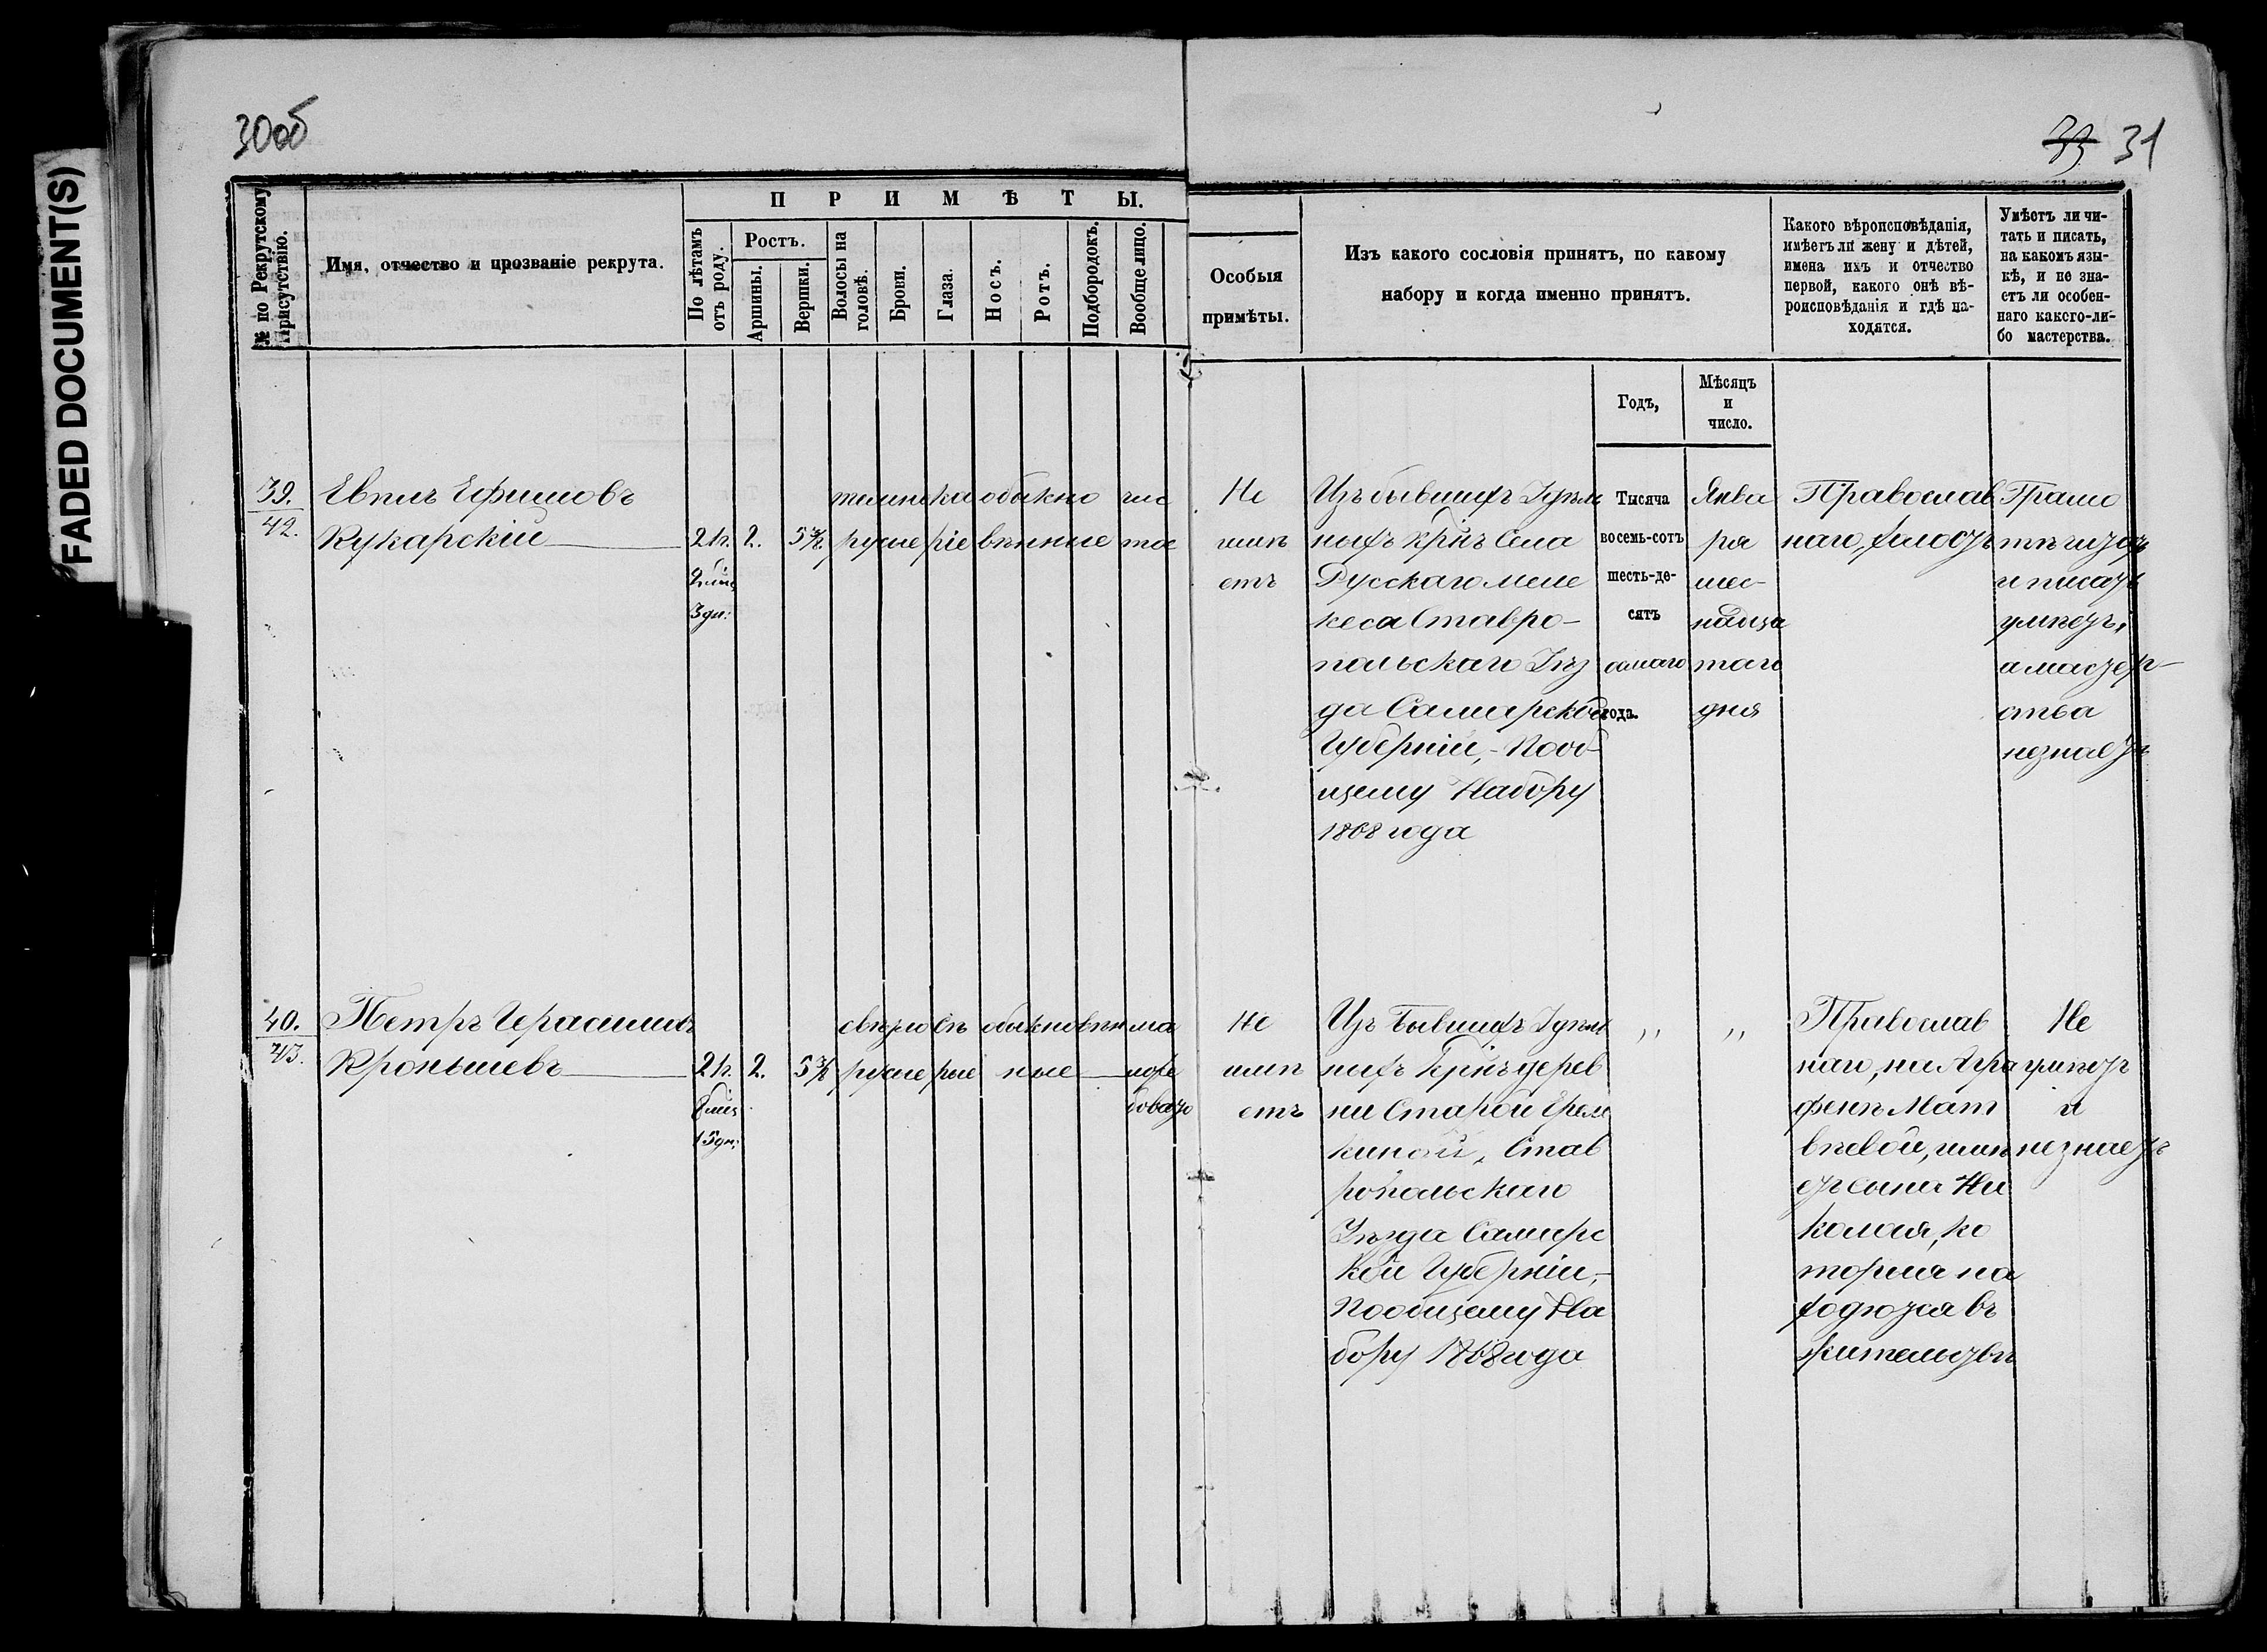 FADED DOCUMENT(S)
30об
33 31
№ по Рекрутскому Присутствію.
Имя, отчество и прозваніе рекрута.
ПРИМѢТЫ.
По лѣтамъ отъ роду.
Ростъ.
Аршины.
Вершки.
Волосы на головѣ.
Брови.
Глаза.
Носъ.
Ротъ.
Подбородокъ.
Вообще лицо.
Особыя
примѣты.
Изъ какого сословія принятъ, по какому
набору и когда именно принятъ.
Годъ,
Мѣсяцъ
и
число.
Какого вѣроисповѣданія,
имѣетъ ли жену и дѣтей,
имена ихъ и отчество
первой, какого онѣ вѣ-
роисповѣданія и гдѣ на-
ходятся.
Умѣетъ ли чи-
тать и писать,
на какомъ язы-
кѣ, и не зна-
етъ ли особен-
наго какого-ли-
бо мастерства.
39.
42.
Евплъ Ефимовъ
Кукарскій
21г.
2 мѣс
3 дн:
2.
темно
русые
ка
ріе
обыкно
венные
чис
тое
Не
имѣ
етъ
Изъ бывшихъ Удѣль
ныхъ крнъ Села
Русскаго Меле
кеса Ставро-
польскаго Уѣз
да Самарской
Губерніи,- Пооб
щему Набору
1868 года
Тысяча
восемь-сотъ
шесть-де-
сятъ
осмаго
года.
Янва
ря
шес-
надца
таго
дня
Православ
наго, холостъ
Грамо
тѣ читать
и писать
умѣетъ,
а мастер-
ства
незнаетъ
40.
43.
Петръ Герасимовъ
Кронышевъ
21г.
8 мѣс
15 дн:
2.
свѣтло
русые
сѣ
рые
обыкновѣн
ные
ма
норе
бовато
Не
имѣ
етъ
Изъ Бывшихъ Удѣль
ныхъ Крнъ дерев
ни Старой Ерем
киной, Став
ропольскаго
Уѣзда Самарс
кой Губерніи,-
Пообщему На
бору 1868 года
,,
,,
Православ
наго, на Агра
фенѣ Мат
вѣевой, имѣ
етъ сына Ни
колая, ко
торыя на
ходются въ
жительствѣ
Не
умѣетъ
и
незнаетъ